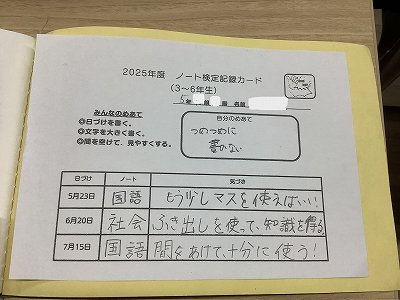 2025年度 ノート検定記録カード
(3～6年生)
5年 組 番 名前
みんなのめあて
◎日づけを書く。
◎文字を大きく書く。
◎間を空けて、見やすくする。
自分のめあて
つめつめに
書かない
日づけ ノート 気づき
5月23日 国語 もう少しマスを使えばいい!
6月20日 社会 ふき出しを使って、知識を得る。
7月15日 国語 間をあけて、十分に使う!